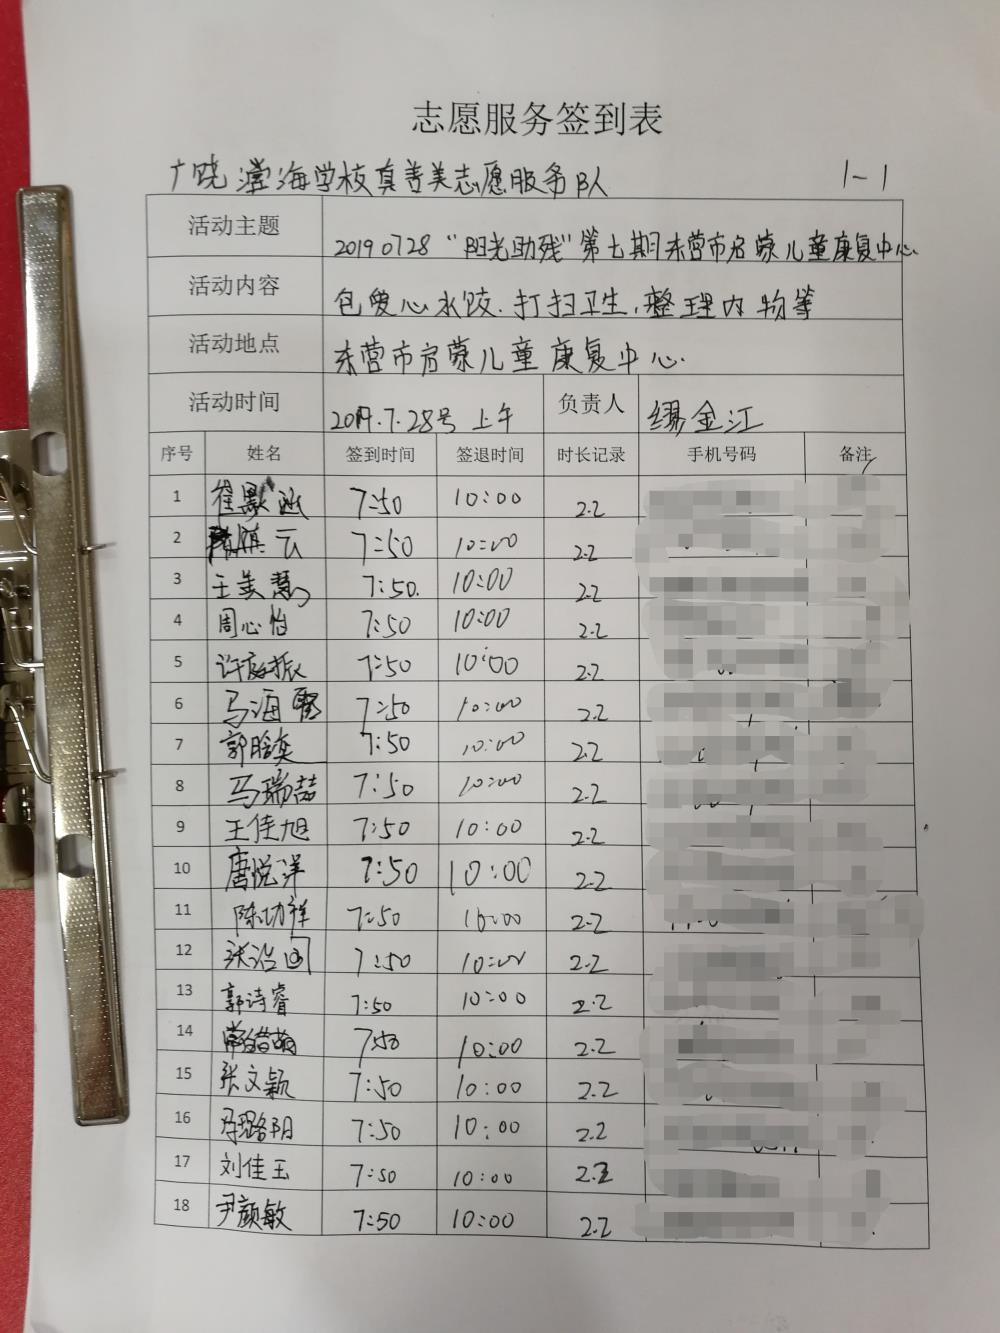 志愿服务签到表
广饶滨海学校真善美志愿服务队 1-1
活动主题 20190728“阳光助残”第七期东营市启蒙儿童康复中心
活动内容 包爱心水饺.打扫卫生,整理内物等
活动地点 东营市启蒙儿童康复中心.
活动时间 2019.7.28号上午 负责人 缪金江
序号 姓名 签到时间 签退时间 时长记录 手机号码 备注
1 7:50 10:00 2.2
2 云 7:50 10:00 2.2
3 王美慧 7:50. 10:00 2.2
4 周心怡 7:50 10:00 2.2
5 许庭振 7:50 10:00 2.2
6 马海 7:50 10:00 2.2
7 郭晗奕 7:50 10:00 2.2
8 马瑞喆 7:50 10:00 2.2
9 王佳旭 7:50 10:00 2.2
10 唐悦洋 7:50 10:00 2.2
11 陈功祥 7:50 10:00 2.2
12 张治国 7:50 10:00 2.2
13 郭诗睿 7:50 10:00 2.2
14 7:50 10:00 2.2
15 张文颖 7:50 10:00 2.2
16 璐阳 7:50 10:00 2.2
17 刘佳玉 7:50 10:00 2.2
18 尹颜敏 7:50 10:00 2.2